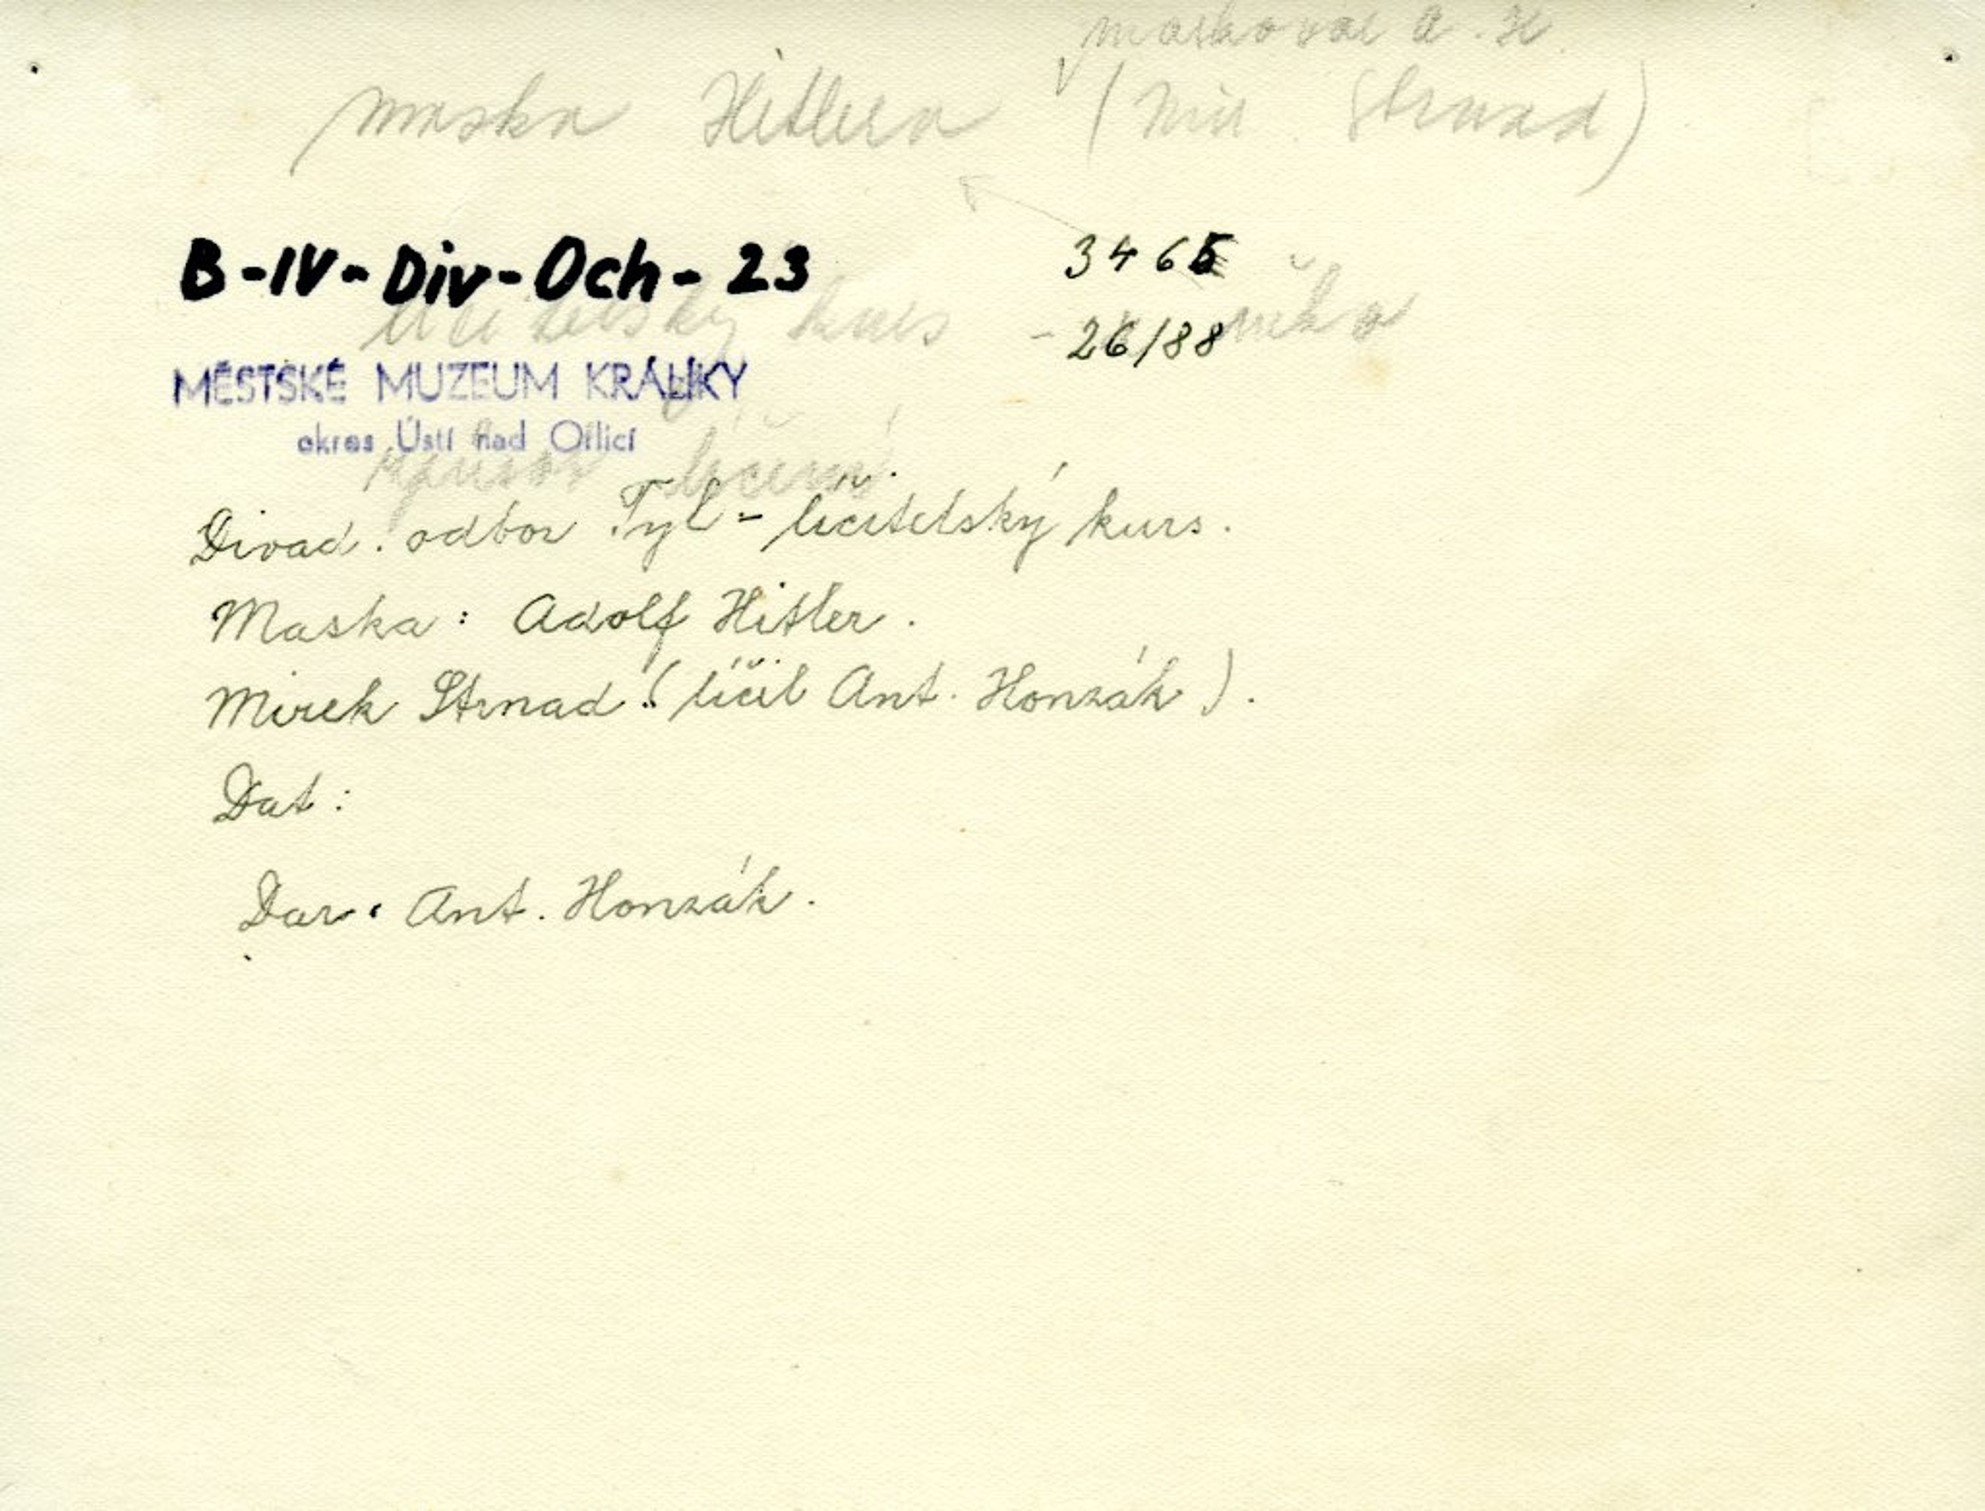 maskoval A. H.
maska Hitlera (Mir. Strnad)
B-IV-Div-Och-23 3465
kurs
26/88
MĚSTSKÉ MUZEUM KRÁLÍKY
okres Ústí nad Orlicí
líčení
Divad. odbor Tyl - líčitelský kurs.
Maska: Adolf Hitler.
Mirek Strnad (líčil Ant. Honzák).
Dat:
Dar: Ant. Honzák.